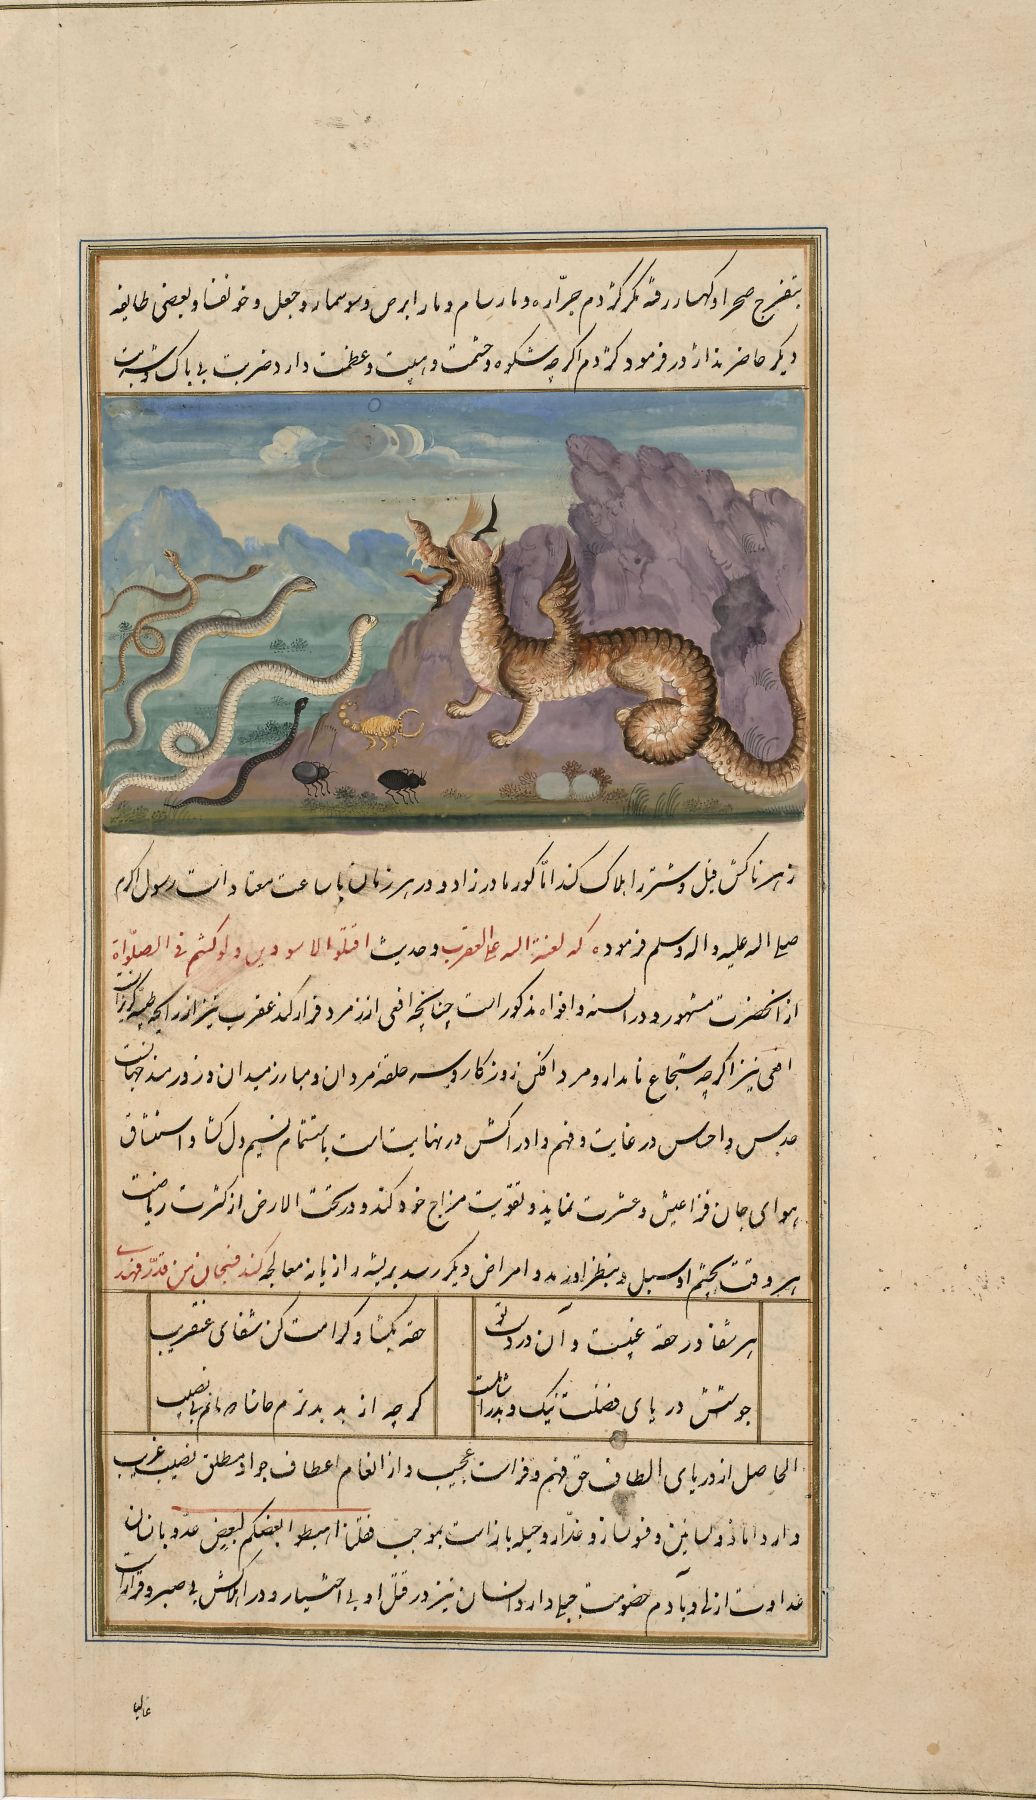 بتفرج صحرا و کهسار رفته مگر کژدم جرّاره و مار سام و مار ابرص و سوسمار و جعل و خونفسا و بعضی طایفه
دیگر حاضر نداژدر فرمود کژدم اگرچه شکوه و حشمت و هیبت و عظمت دارد ضربت بی باک
زهرناکش فیل و شتر را هلاک کند امّا کور مادرزاد و در هر زمان با ساعت معتاد است رسول اکرم
صلی اله علیه و اله و سلم فرموده که لعنة اله علی العقرب و حدیث اقتلوا الاسودین ولو کنتم فی الصلواة
از آنحضرت مشهور و در السنه و افواه مذکور است چنانچه افعی از زمرد فرار کند عقرب نیز از رایحه
افعی نیز اگرچه شجاع نامدار و مرد افکن روزکار و سر حلقۀ مردان و مبارز میدان و زورمند جهانست
حدس و احساس در غایت و فهم و ادراکش در نهایت است باستشمام نسیم دل کشا و استنشاق
هوای جان فزا عیش و عشرت نماید و تقویت مزاج خود کند و در تحت الارض از کثرت ریاضت
هر وقت بچشم او سبل و بنظر او رمد و امراض دیگر رسد بریشۀ رازیانه معالجه کند فسبحان من قدّر فهدی
هر شفا در حقه غیبست و آن در دست تو
حقه بکشا و کرامت کن شفای عنقریب
جوشش دریای فضلت نیک و بد را شاملست
کرچه از بد بدترم حاشا که مانم بی نصیب
الحاصل از دریای الطاف حق فهم و فراست عجیب و از انعام اعطاف جواد مطلق نصیب غریب
دارد اما ذو لسانین و فنون ساز و غدّار و حیله باز است بموجب قلنا اهبطوا بعضکم لبعض عدو با انسان
عداوت ازلی و بآدم خصومت جبلی دارد انسان نیز در قتل او بی اختیار و در اهلاکش بی صبر و قرار است